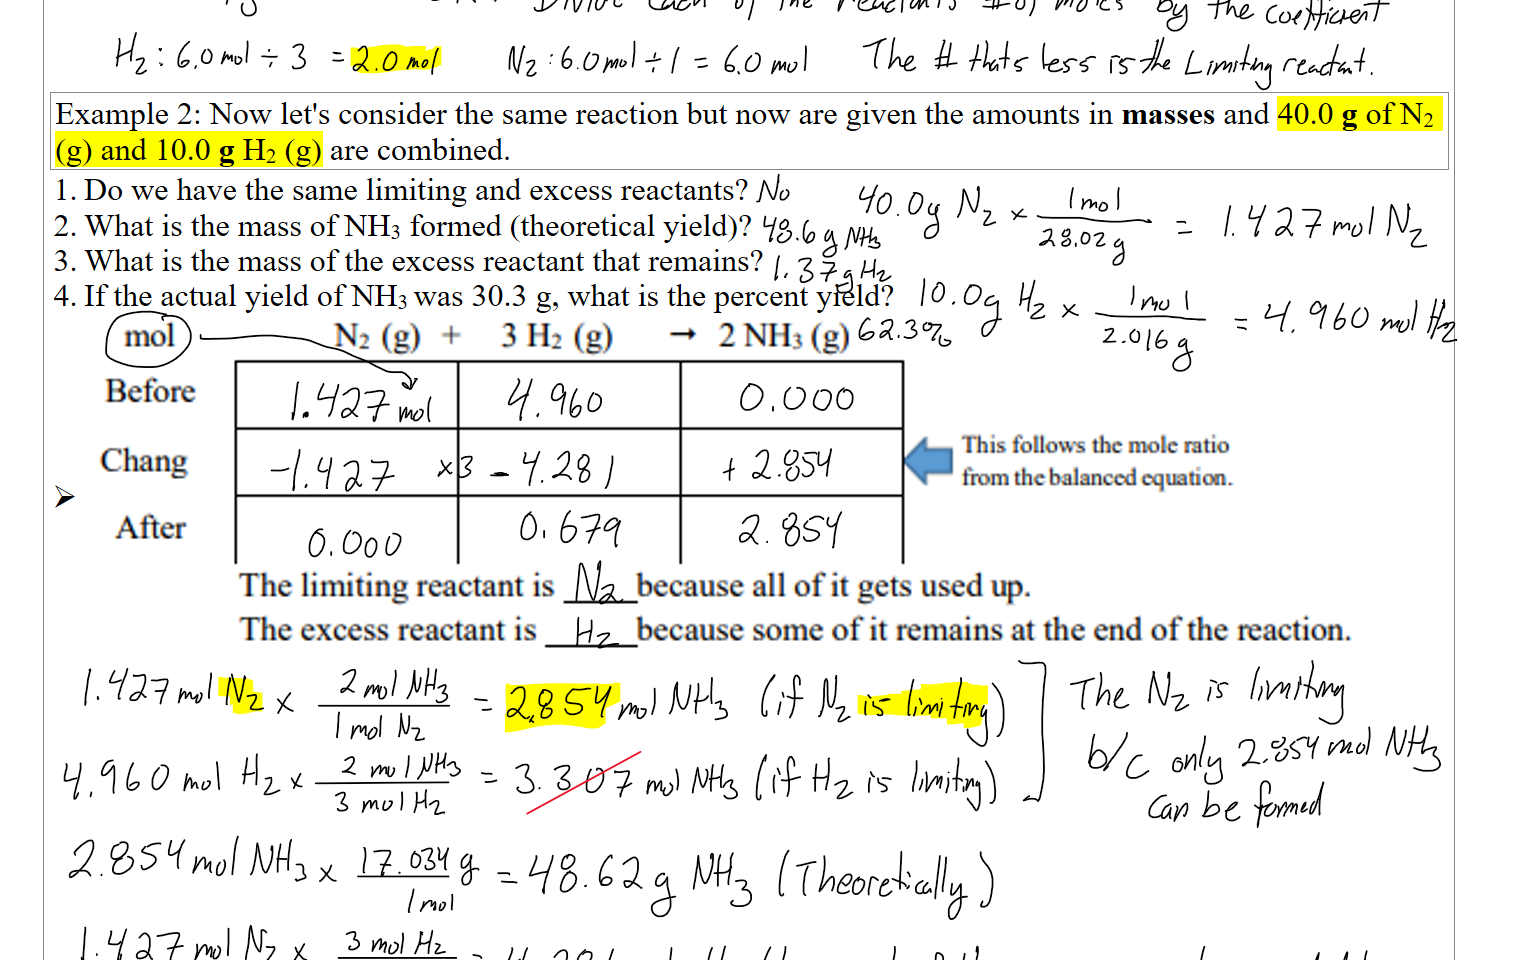 Divide each of the reactants # of moles by the coefficient
H2 : 6.0 mol ÷ 3 = 2.0 mol N2 : 6.0 mol ÷ 1 = 6.0 mol The # thats less is the Limiting reactant.
Example 2: Now let's consider the same reaction but now are given the amounts in masses and 40.0 g of N2
(g) and 10.0 g H2 (g) are combined.
1. Do we have the same limiting and excess reactants? No
40.0g N2 × 1 mol / 28.02 g = 1.427 mol N2
2. What is the mass of NH3 formed (theoretical yield)? 48.6 g NH3
3. What is the mass of the excess reactant that remains? 1.37g H2
4. If the actual yield of NH3 was 30.3 g, what is the percent yield? 62.3%
10.0g H2 × 1 mol / 2.016 g = 4.960 mol H2
mol N2 (g) + 3 H2 (g) → 2 NH3 (g)
Before 1.427 mol 4.960 0.000
Chang -1.427 ×3 - 4.281 + 2.854
This follows the mole ratio
from the balanced equation.
After 0.000 0.679 2.854
The limiting reactant is N2 because all of it gets used up.
The excess reactant is H2 because some of it remains at the end of the reaction.
1.427 mol N2 × 2 mol NH3 / 1 mol N2 = 2.854 mol NH3 (if N2 is limiting)
4.960 mol H2 × 2 mol NH3 / 3 mol H2 = 3.307 mol NH3 (if H2 is limiting)
The N2 is limiting
b/c only 2.854 mol NH3
can be formed
2.854 mol NH3 × 17.034 g / 1 mol = 48.62 g NH3 (Theoretically)
1.427 mol N2 × 3 mol H2